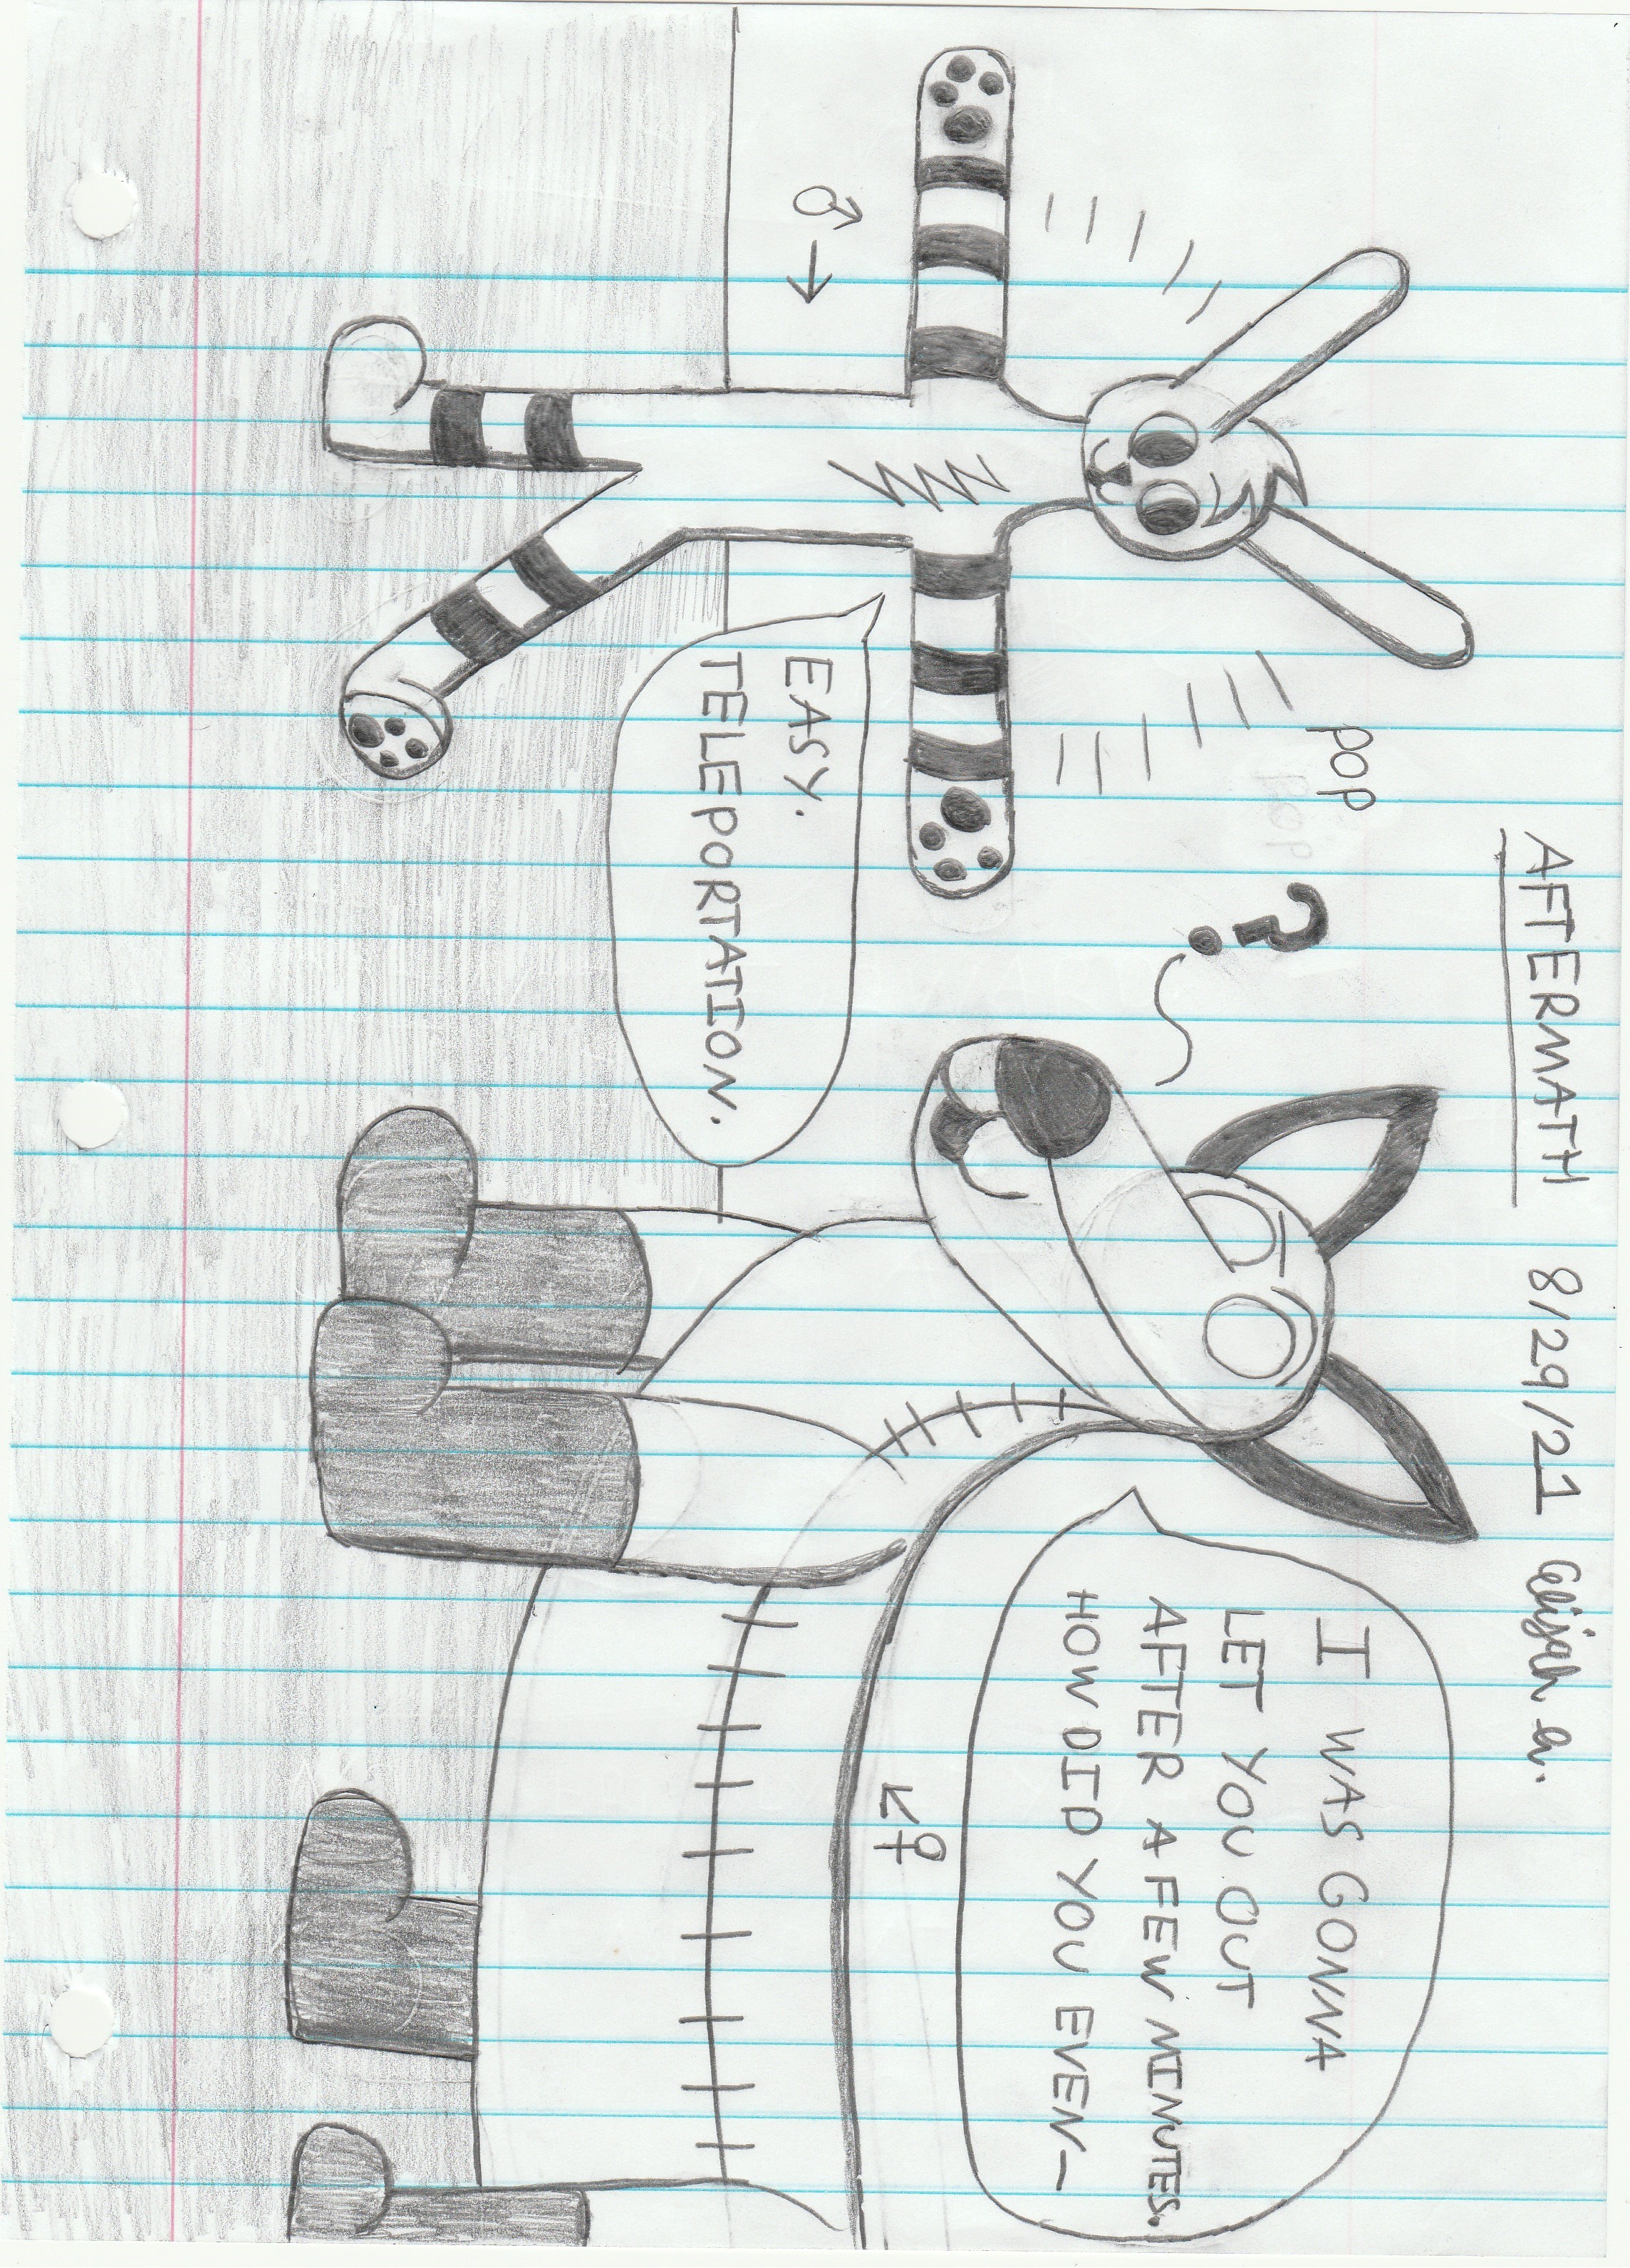 AFTERMATH 8/29/21 Elijah
POP
POP
?
I WAS GONNA
LET YOU OUT
AFTER A FEW MINUTES.
HOW DID YOU EVEN—
♀
♂
EASY.
TELEPORTATION.